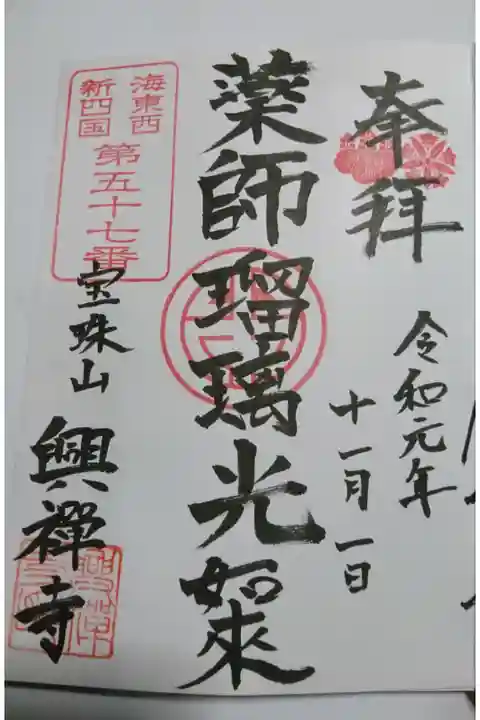 奉拝
令和元年
十一月一日
薬師瑠璃光如來
海東西
新四国
第五十七番
宝珠山
興禅寺